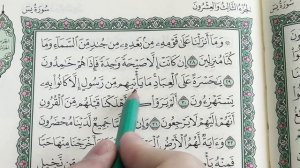 الجزء الثالث والعشرون سورة يس
۞ وَمَآ أَنزَلْنَا عَلَىٰ قَوْمِهِۦ مِنۢ بَعْدِهِۦ مِن جُندٍ مِّنَ ٱلسَّمَآءِ وَمَا
كُنَّا مُنزِلِينَ ٢٨ إِن كَانَتْ إِلَّا صَيْحَةً وَٰحِدَةً فَإِذَا هُمْ خَٰمِدُونَ
٢٩ يَٰحَسْرَةً عَلَى ٱلْعِبَادِ مَا يَأْتِيهِم مِّن رَّسُولٍ إِلَّا كَانُوا۟ بِهِۦ
يَسْتَهْزِءُونَ ٣٠ أَلَمْ يَرَوْا۟ كَمْ أَهْلَكْنَا قَبْلَهُم مِّنَ ٱلْقُرُونِ
أَنَّهُمْ إِلَيْهِمْ لَا يَرْجِعُونَ ٣١ وَإِن كُلٌّ لَّمَّا جَمِيعٌ لَّدَيْنَا مُحْضَرُونَ
٣٢ وَءَايَةٌ لَّهُمُ ٱلْأَرْضُ أَحْيَيْنَٰهَا وَأَخْرَجْنَا مِنْهَا حَبًّا
مِّن نَّخِيلٍ